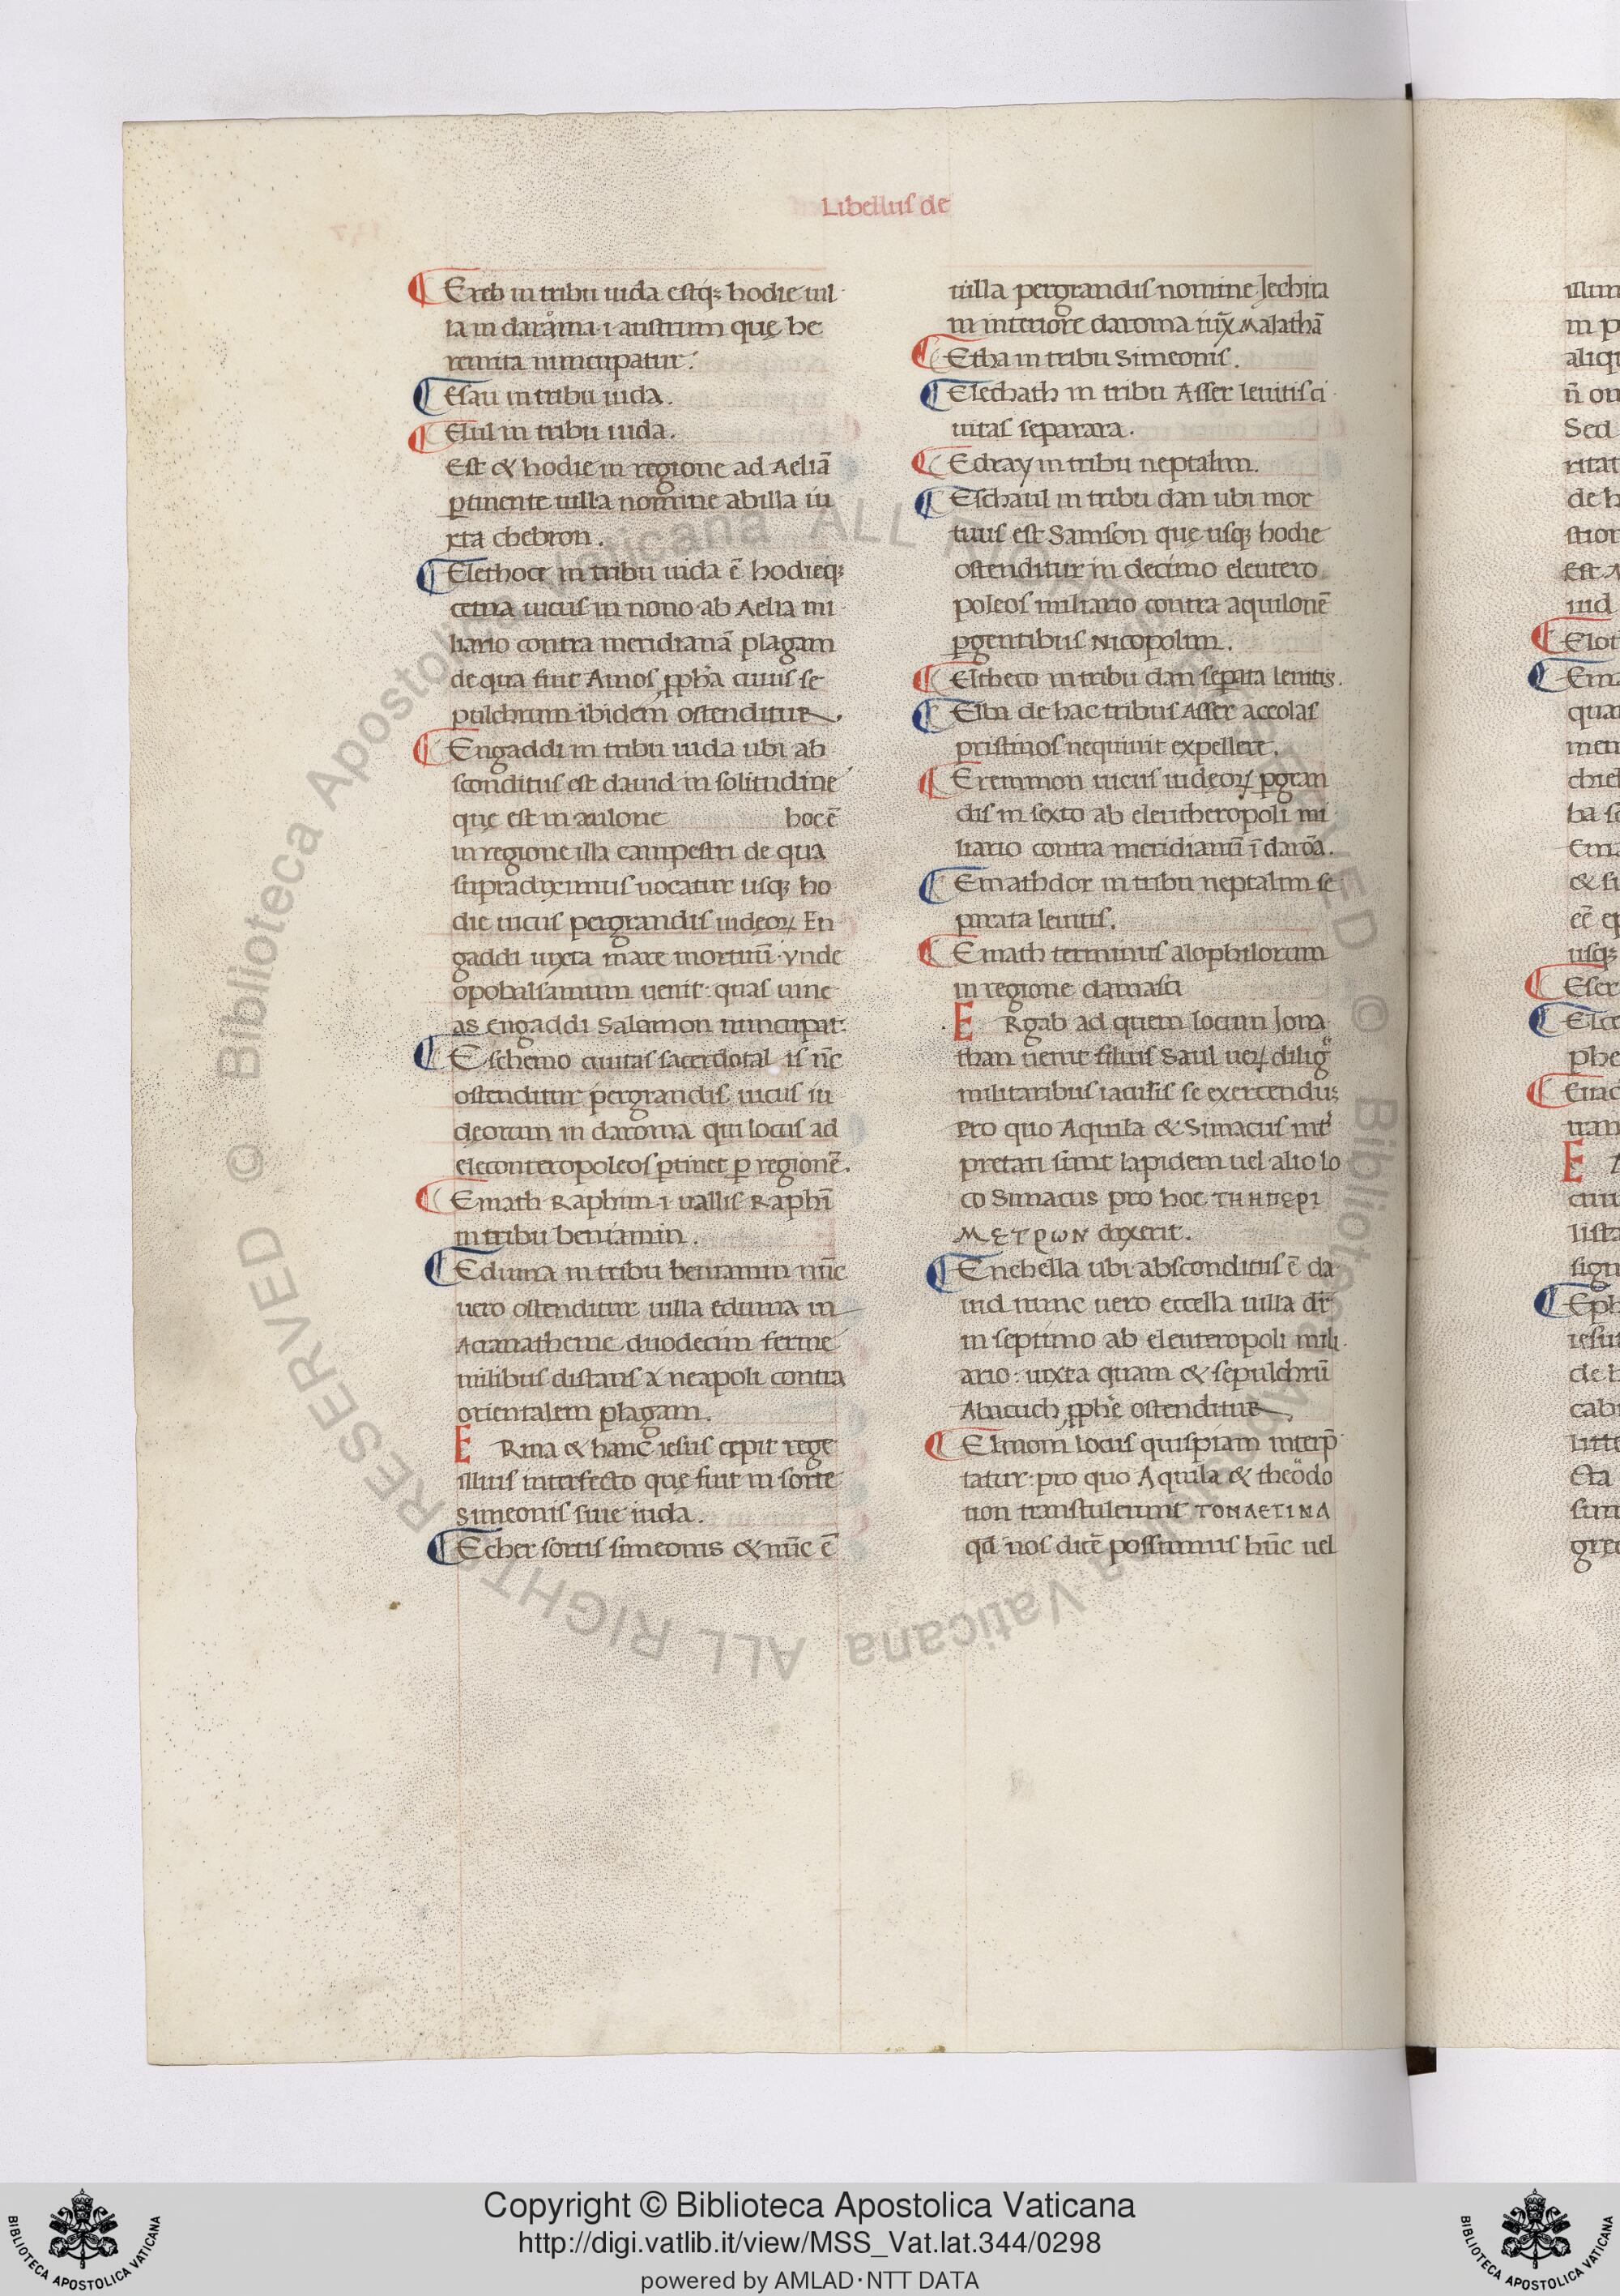 Libellus de
Ereb in tribu iuda estq; hodie uil
la in daroma .i. austrum quę he
remita nuncupatur.
Esau in tribu iuda.
Elul in tribu iuda.
Est & hodie in regione ad Aeliā
ꝑtinente uilla nomine abilla iu
xta chebron.
Elethoce in tribu iuda ē hodieq;
cetua uicus in nono ab Aelia mi
liario contra meridianā plagam
de qua fuit Amos ꝓpha cuius se
pulchrum ibidem ostenditur.
Engaddi in tribu iuda ubi ab
sconditus est dauid in solitudine
que est in aulone hoc ē
in regione illa campestri de qua
supra diximus uocatur usq; ho
die uicus pergrandis iudeoꝝ En
gaddi iuxta mare mortuū. vnde
opobalsamum uenit: quas uine
as engaddi Salomon nuncupat.
Eschemo ciuitas sacerdotal is nc̄
ostenditur pergrandis uicus iu
deorum in daroma qui locus ad
eleconteropoleos ꝑtinet ꝑ regionē.
Emath Raphim .i. uallis Raphī
in tribu beniamin.
Eduma in tribu beniamin nūc
uero ostenditur uilla eduma in
Acranathene duodecim ferme
milibus distans a neapoli contra
orientalem plagam.
ERma & hanc iesus cepit rege
illius interfecto quę fuit in sorte
simeonis siue iuda.
Ether sortis simeonis & nūc ē
uilla pergrandis nomine Jechira
in interiore daroma iux̄ Malathā
Etha in tribu Simeonis.
Elechath in tribu Asser leuitis ci
uitas separara.
Edray in tribu neptalim.
Eschaul in tribu dan ubi mor
tuus est Samson que usq; hodie
ostenditur in decimo eleutero
poleos miliario contra aquilonē
ꝑgentibus Nicopolim.
Eltheco in tribu dan seꝑata leuitis.
Elba de hac tribus Asser accolas
pristinos nequiuit expellere.
Eremmon uicus iudeoꝝ ꝑgran
dis in sexto ab eleutheropoli mi
liario contra meridianū ī daroa.
Emathdor in tribu neptalim se
parata leuitis.
Emath terminus alophilorum
in regione damasci
ERgab ad quem locum Jona
than uenit filius Saul ueꝝ dilig
militaribus iaculis se exercendus
Pro quo Aquila & Simacus int
pretati sunt lapidem uel alio lo
co Simacus pro hoc ΤΗΗΠΕΡΙ
ΜΕΤΡΩΝ dixerit.
Enehella ubi absconditus ē da
uid nunc uero eccella uilla dr̄
in septimo ab eleuteropoli mili
ario: iuxta quam & sepulchrū
Abacuch ꝓphe ostenditur.
Elmom locus quispiam interp̄
tatur. pro quo Aquila & theodo
tion transtulerunt ΤΟΝΛΕΓΙΝΑ
qd̄ nos dicē possumus hūc uel
Copyright © Biblioteca Apostolica Vaticana
http://digi.vatlib.it/view/MSS_Vat.lat.344/0298
powered by AMLAD·NTT DATA